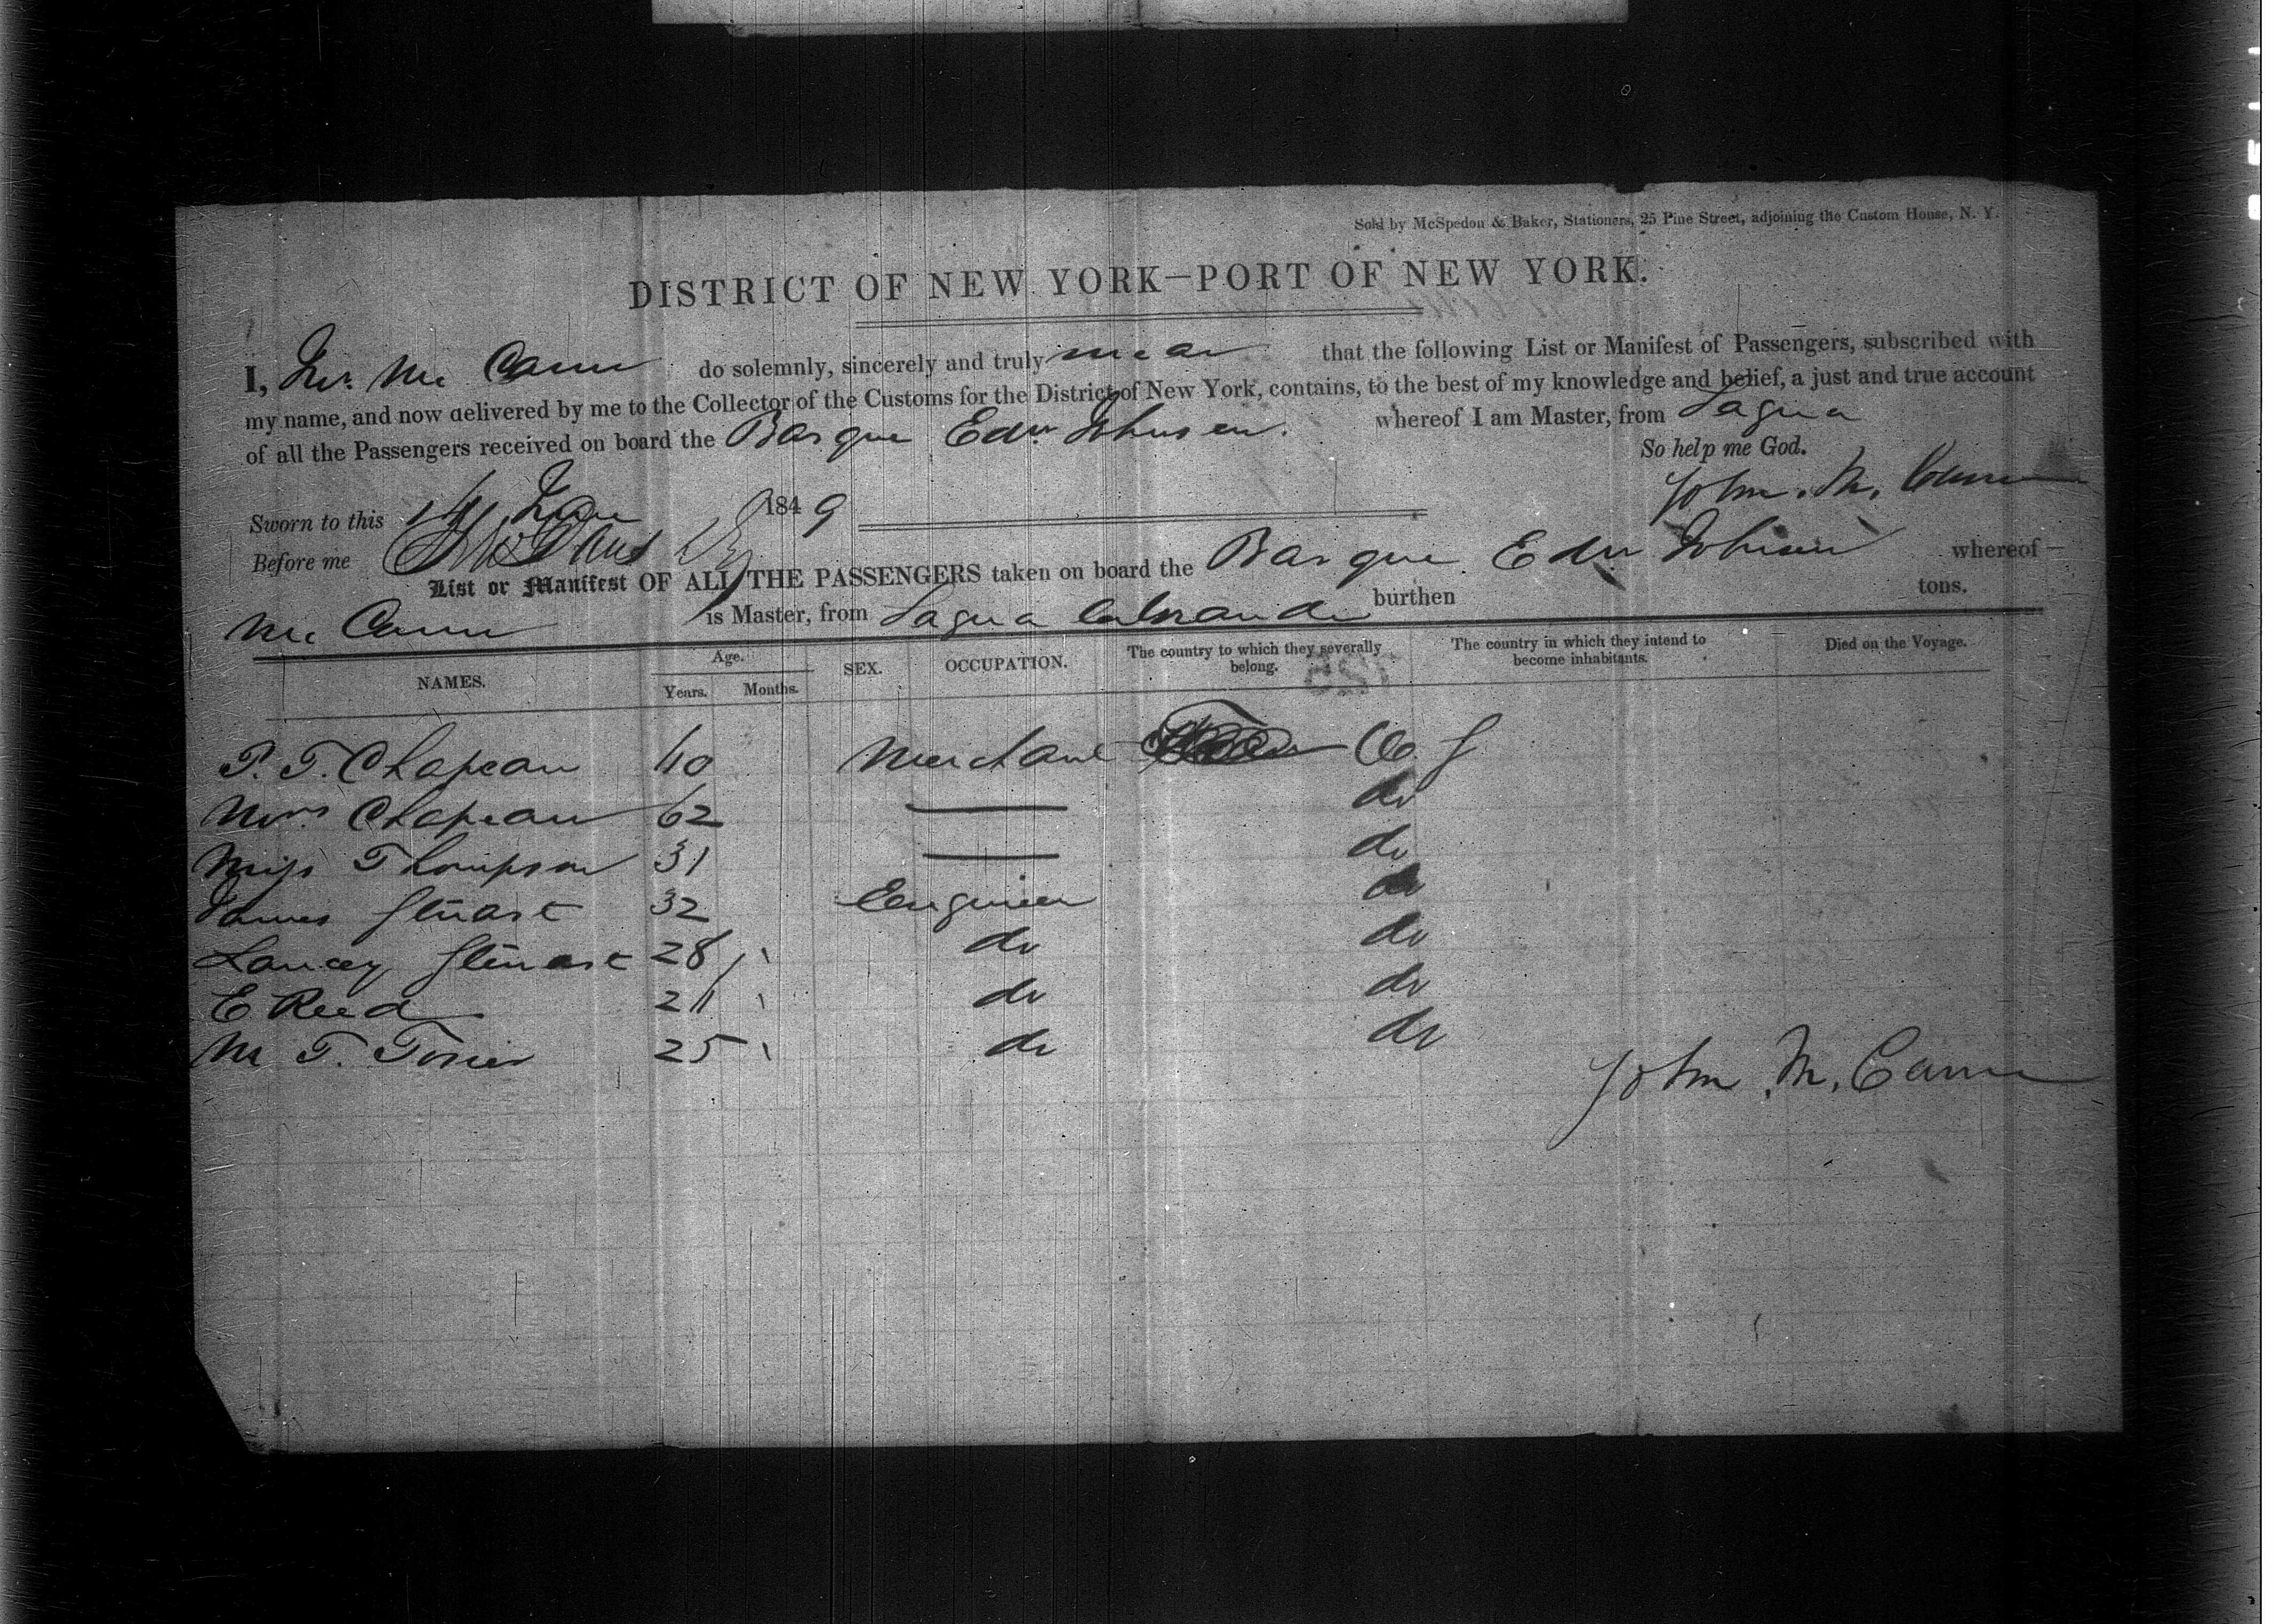 Sold by McSpedon & Baker, Stationers, 25 Pine Street, adjoining the Custom House, N. Y.
DISTRICT OF NEW YORK—PORT OF NEW YORK.
I, Jno. Mc Cann do solemnly, sincerely and truly swear that the following List or Manifest of Passengers, subscribed with
my name, and now delivered by me to the Collector of the Customs for the District of New York, contains, to the best of my knowledge and belief, a just and true account
of all the Passengers received on board the Barque Edw Johnson. whereof I am Master, from Sagua
So help me God.
John. M. Cann
Sworn to this 14 Jan 1849
Before me
List or Manifest OF ALL THE PASSENGERS taken on board the Barque Edw Johnson whereof
Mc Cann is Master, from Sagua La Grande burthen tons.
NAMES. Age. Years. Months. SEX. OCCUPATION. The country to which they severally belong. The country in which they intend to become inhabitants. Died on the Voyage.
P. T. Chapeau 40 Merchant U. S
Mrs Chapeau 62 do
Miss Thompson 31 do
James Stuart 32 Enginier do
Stuart 28 do do
E Reed 21 do do
M T. 25 do do
John M. Cann